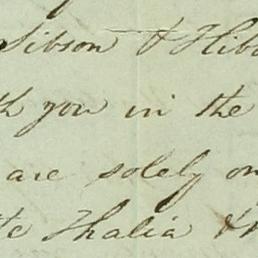 Sibson & Hib
you in the
are solely on
Thalia &